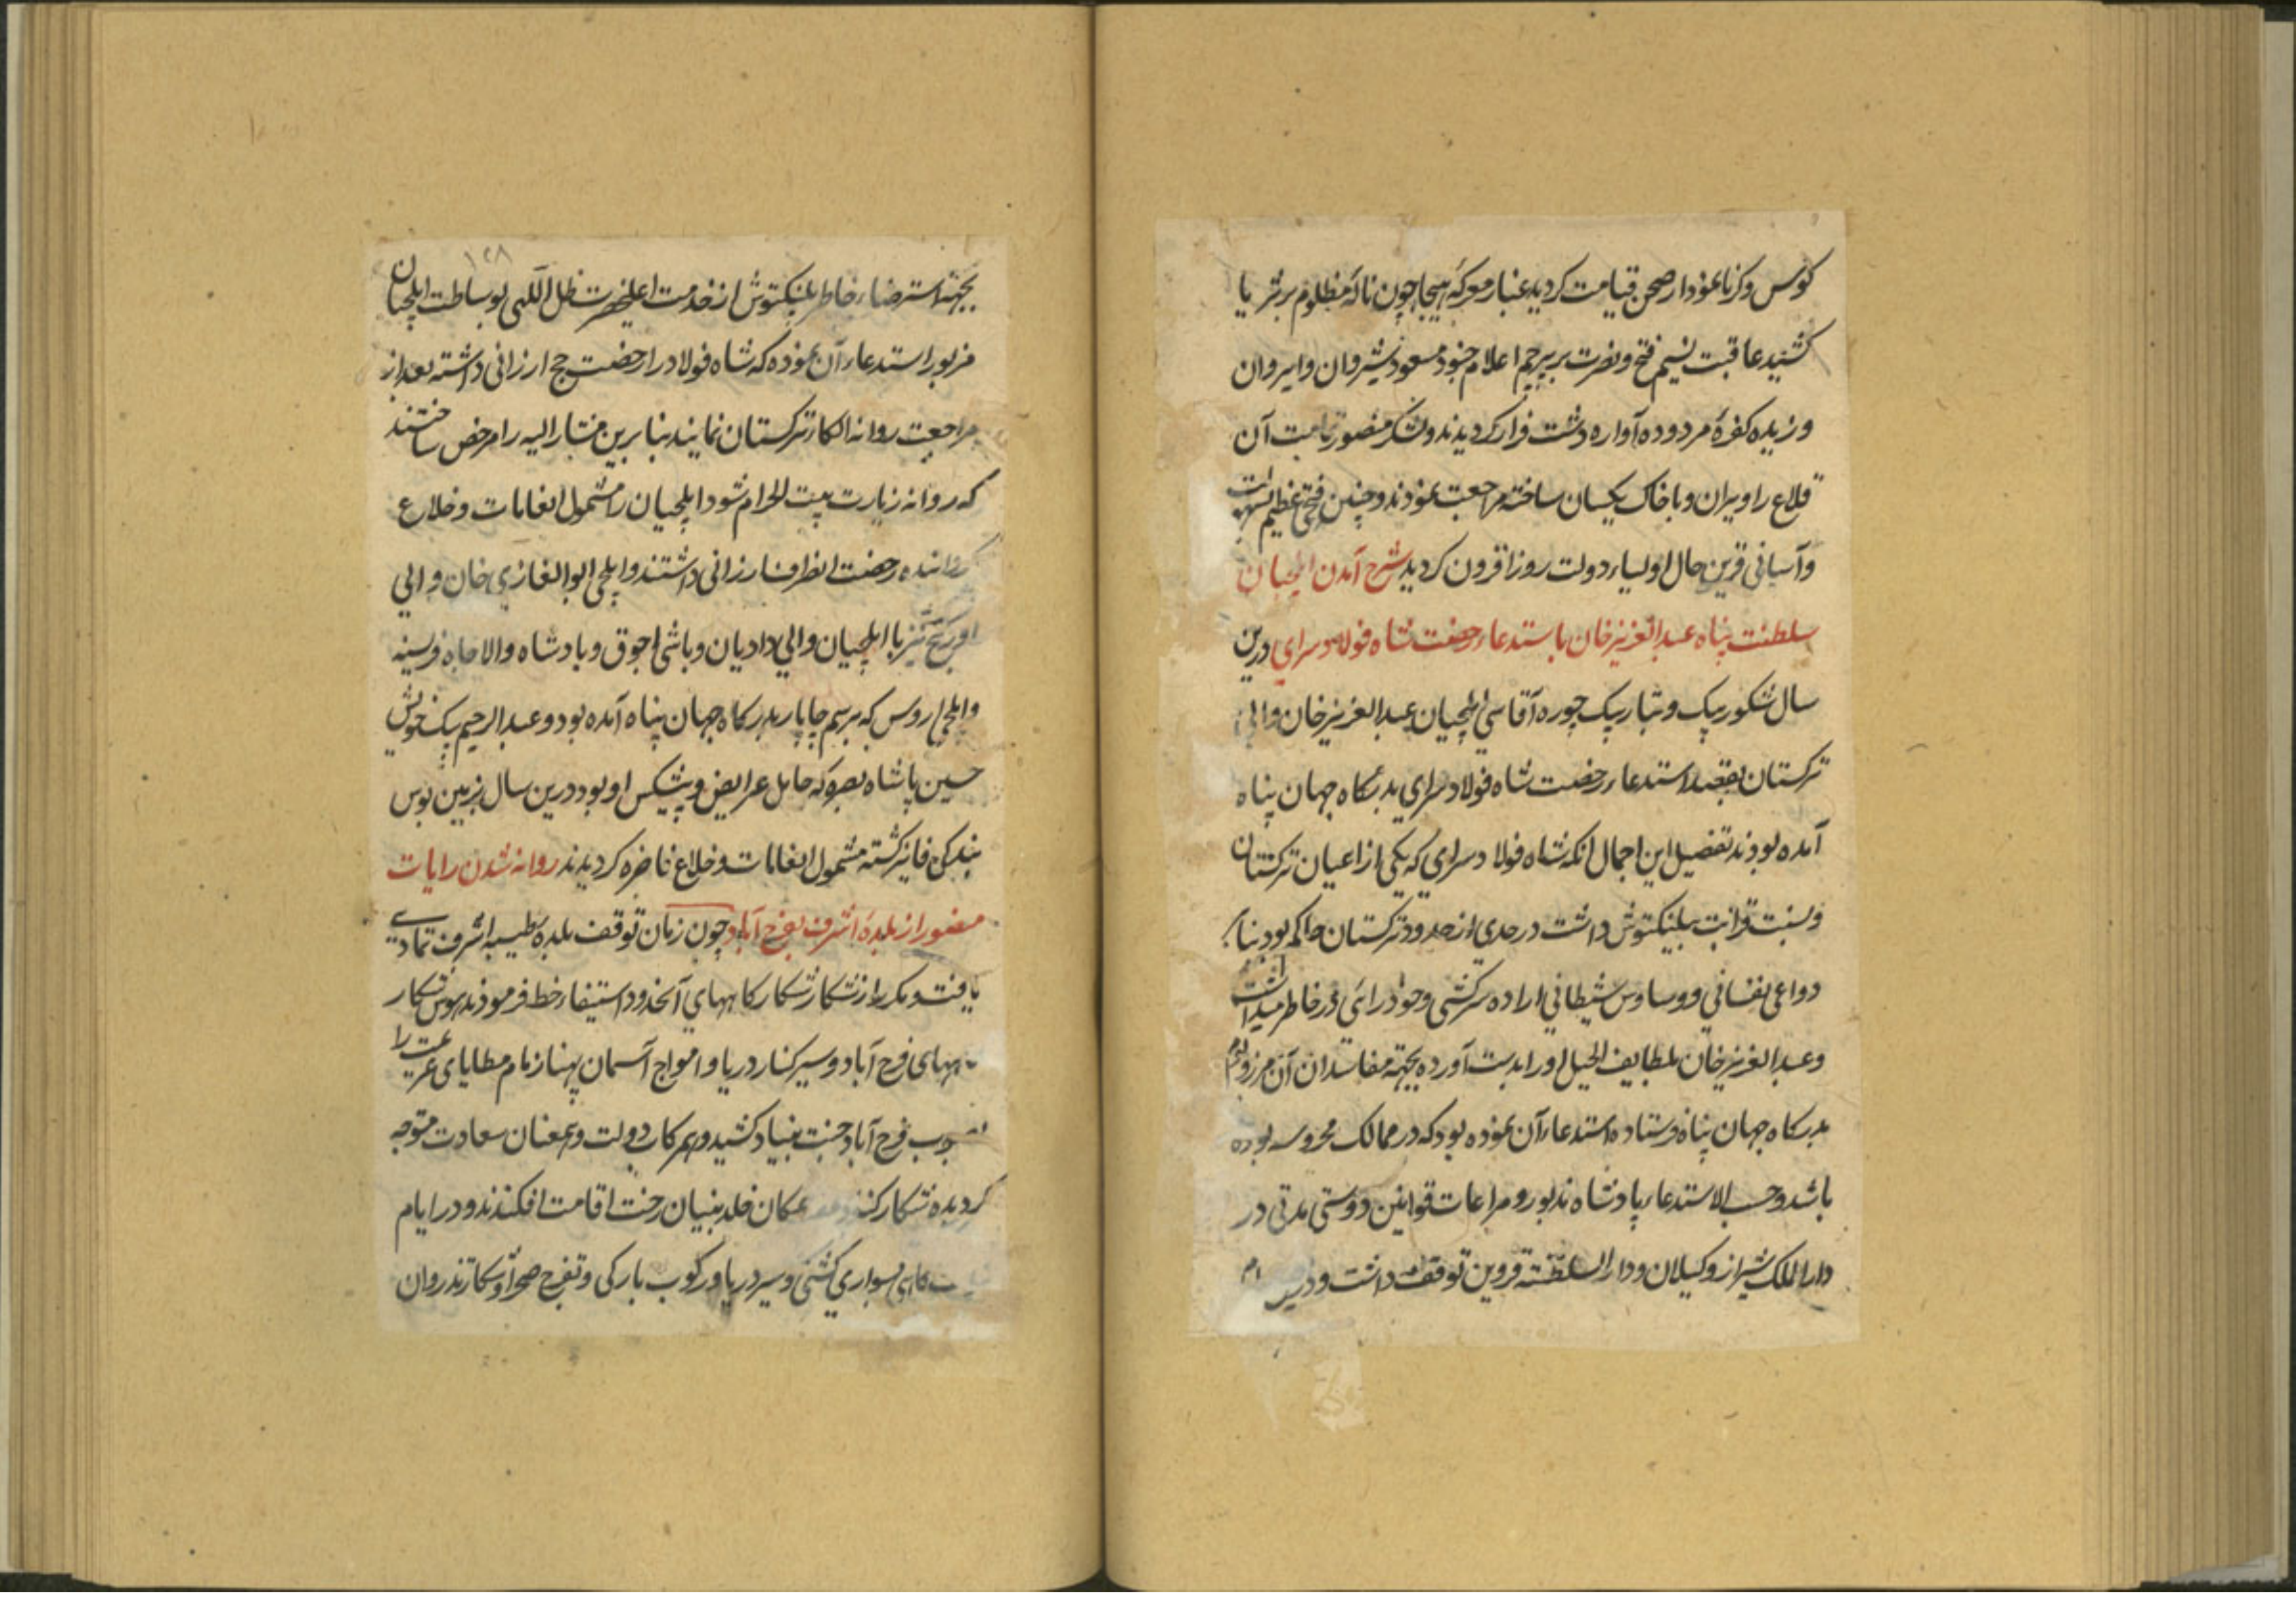 کوس و کرنا نمودار صحن قیامت کردید غبار معرکهٔ هیجا چون نالهٔ مظلوم بر ثریا
کشید عاقبت نسیم فتح و نصرت بر پرچم اعلام جنود مسعود شیروان و ایروان
وزیده کفرهٔ مردوده آواره دشت فرار کردیدند و لشکر منصور تمامت آن
قلاع را ویران و با خاک یکسان ساخته مراجعت نمودند و چنین فتحی عظیم بسهولت
و آسانی قرین حال اولیاء دولت روزافزون کردید شرح آمدن ایلچیان
سلطنت پناه عبدالعزیز خان باستدعاء رخصت شاه فولاد سرای درین
سال شکور بیک و تبار بیک چوره آقاسی ایلچیان عبدالعزیز خان والی
ترکستان بقصد استدعاء رخصت شاه فولاد سرای بدرکاه جهان پناه
آمده بودند تفصیل این اجمال انکه شاه فولاد سرای که یکی از اعیان ترکستان
و نسبت قرابت بیلنکتوش داشت در حدی از حدود ترکستان حاکم بود بنابر
دواعی نفسانی و وساوس شیطانی اراده سرکشی و خود رائی در خاطر میداشت
و عبدالعزیز خان بلطایف الحیل او را بدست آورده بجهة مفاسد ان آن مرز و بوم
بدرکاه جهان پناه فرستاده استدعاء آن نموده بود که در ممالک محروسه بوده
باشد و حسب الاستدعاء پادشاه مذبور و مراعات قوانین دوستی مدتی در
دارالملک شیراز و کیلان و دار السلطنه قزوین توقف داشت و درین
۱۲۸
بجهة استرضاء خاطر یلنکتوش از خدمت اعلیحضرت ظل اللهی بوساطت ایلچیان
مزبور استدعاء آن نموده که شاه فولاد را رخصت حج ارزانی داشته بعد از
مراجعت روانه الکار ترکستان نمایند بنا برین مشار الیه را مرخص ساختند
که روانه زیارت بیت الحرام شود و ایلچیان را مشمول انعامات و خلاع
کردانیده رخصت انصراف ارزانی داشتند و ایلچی ابوالغازی خان والی
اورکنج نیز با ایلچیان والی دادیان و باشی اجوق و پادشاه والا جاه فرسیه
و ایلچی اروس که برسم چاپار بدرکاه جهان پناه آمده بود و عبدالرحیم بیک خویش
حسین پاشاه بصره که حامل عرایض و پیشکس او بود درین سال بزمین بوس
بندکی فایز کشته مشمول انعامات و خلاع فاخره کردیدند روانه شدن رایات
منصور از بلدهٔ اشرف بفرح آباد چون زمان توقف بلدهٔ طیبه اشرف تمادی
یافت و مکرر از شکار شکارکاههای آنحدود استیفاء حظ فرمودند هوس شکار
کاههای فرح آباد و سیر کنار دریا و امواج آسمان پهنا زمام مطایای عزیمت را
بصوب فرح آباد جنت بنیاد کشید و همرکاب دولت و همعنان سعادت متوجه
کردیده شکار کنان مکان خلد بنیان رخت اقامت افکندند و در ایام
سواری کشتی و سیر دریا و رکوب بارکی و تفرج صحرا و شکار تذروان